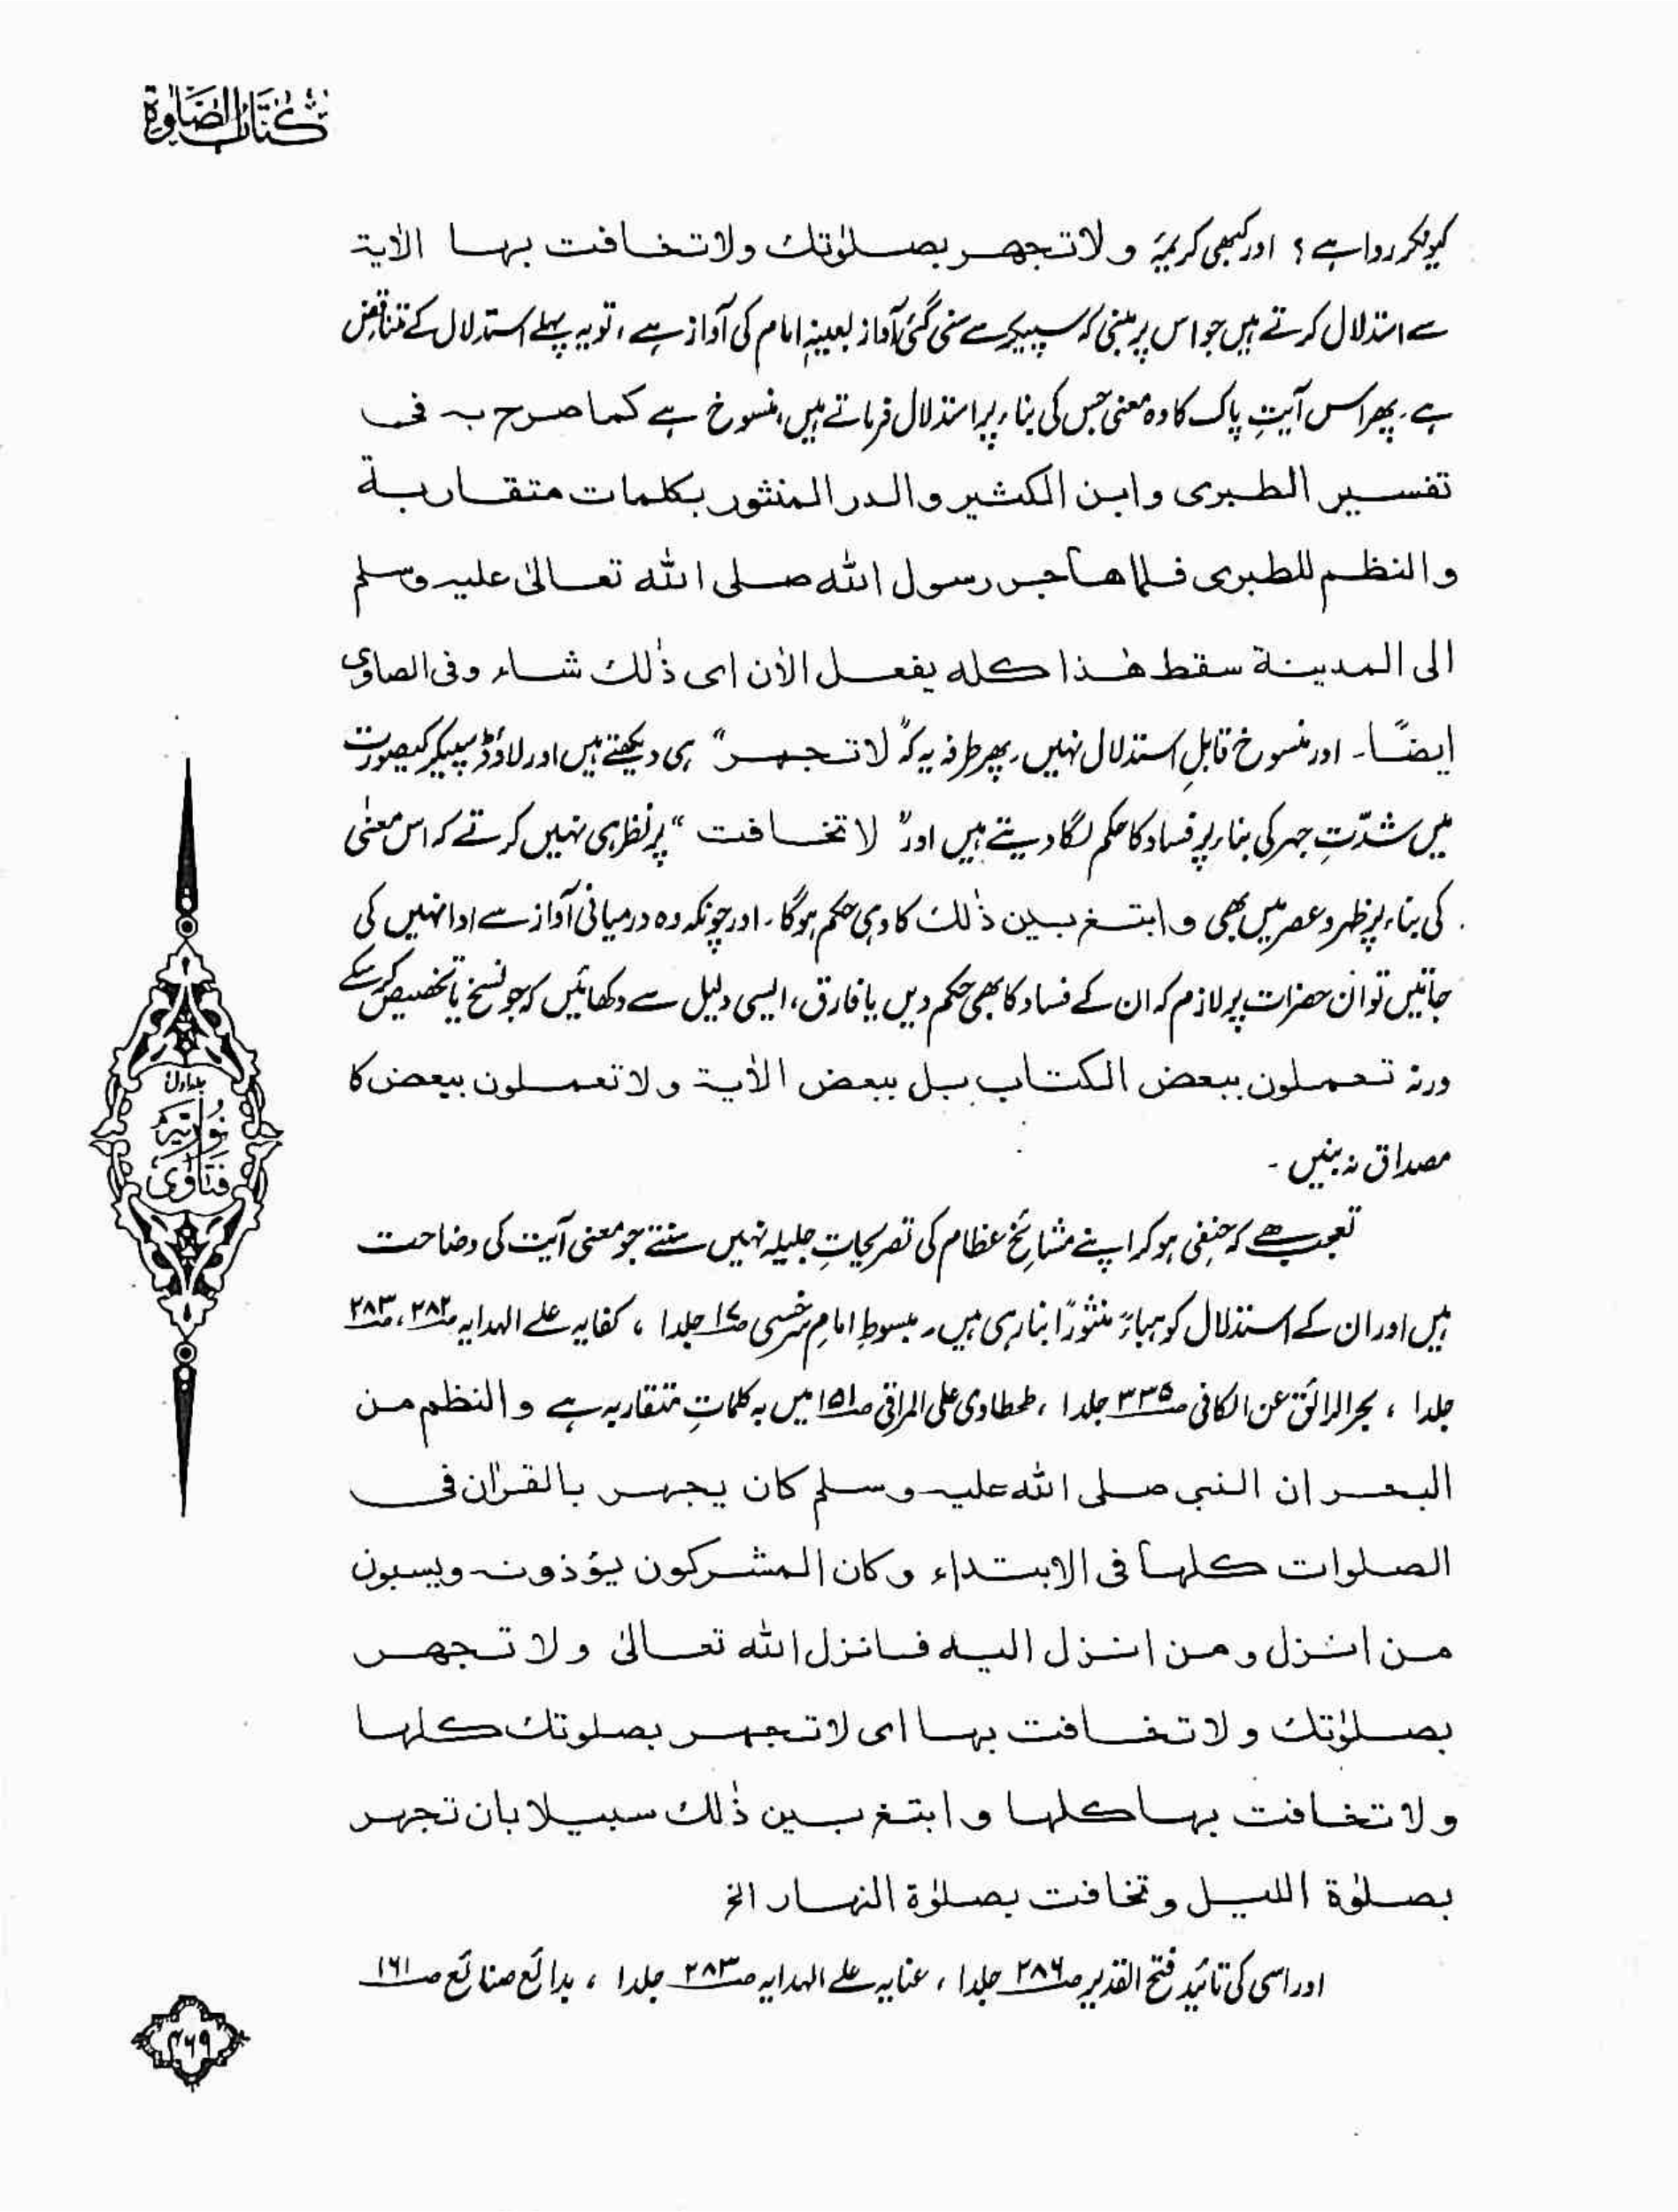 كتاب الصلوة
کیونکر روا ہے ؟ اور کبھی کریمۂ ولا تجهر بصلوٰتك ولا تخافت بها الاٰية
سے استدلال کرتے ہیں جو اس پر مبنی کہ سپیکر سے سنی گئی آواز بعینہٖ امام کی آواز ہے ، تو یہ پہلے استدلال کے متناقض
ہے ۔ پھر اس آیتِ پاک کا وہ معنی جس کی بناء پر استدلال فرماتے ہیں، منسوخ ہے كما صرح به فی
تفسير الطبری وابن الكثير والدر المنثور بكلمات متقاربة
والنظم للطبری فلما هاجر رسول الله صلى الله تعالیٰ عليه وسلم
الى المدينة سقط هٰذا كله يفعل الاٰن ای ذٰلك شاء وفی الصاوی
ايضًا ۔ اور منسوخ قابلِ استدلال نہیں ۔ پھر طرفہ یہ کہ "لا تجهر" ہی دیکھتے ہیں اور لاؤڈ سپیکر کیصورت
میں شدّتِ جہر کی بناء پر فساد کا حکم لگا دیتے ہیں اور " لا تخافت " پر نظر ہی نہیں کرتے کہ اس معنٰی
کی بناء پر ظہر و عصر میں بھی وابتغ بين ذٰلك کا وہی حکم ہوگا ۔ اور چونکہ وہ درمیانی آواز سے ادا نہیں کی
جاتیں تو ان حضرات پر لازم کہ ان کے فساد کا بھی حکم دیں یا فارق، ایسی دلیل سے دکھائیں کہ جو نسخ یا تخصیص کر سکے
ورنہ تعملون ببعض الكتاب بل ببعض الاٰية ولا تعملون ببعض کا
مصداق نہ بنیں ۔
تعجب ہے کہ حنفی ہو کر اپنے مشائخ عظام کی تصریحاتِ جلیلہ نہیں سنتے جو معنی آیت کی وضاحت
ہیں اور ان کے استدلال کو ہباءً منثورًا بنا رہی ہیں ۔ مبسوطِ امام سرخسی صـ۱۷ جلد۱ ، کفایہ علے الہدایہ صـ۲۸۲، صـ۲۸۳
جلد۱ ، بحر الرائق عن الکافی صـ۳۳۵ جلد۱ ، طحطاوی علی المراقی صـ۱۵۱ میں بہ کلماتِ متقاربہ ہے والنظم من
البحر ان النبی صلى الله عليه وسلم كان يجهر بالقراٰن فی
الصلوات كلها فی الابتداء وكان المشركون يؤذونه ويسبون
من انزل ومن انزل اليه فانزل الله تعالیٰ ولا تجهر
بصلوٰتك ولا تخافت بها ای لا تجهر بصلوتك كلها
ولا تخافت بها كلها وابتغ بين ذٰلك سبيلا بان تجهر
بصلوٰة الليل وتخافت بصلوٰة النهار الخ
اور اسی کی تائید فتح القدیر صـ۲۸۶ جلد۱ ، عنایہ علے الہدایہ صـ۲۸۳ جلد۱ ، بدائع صنائع صـ۱۶۱
جلد اول
نوریہ
فتاوٰی
۴۶۹